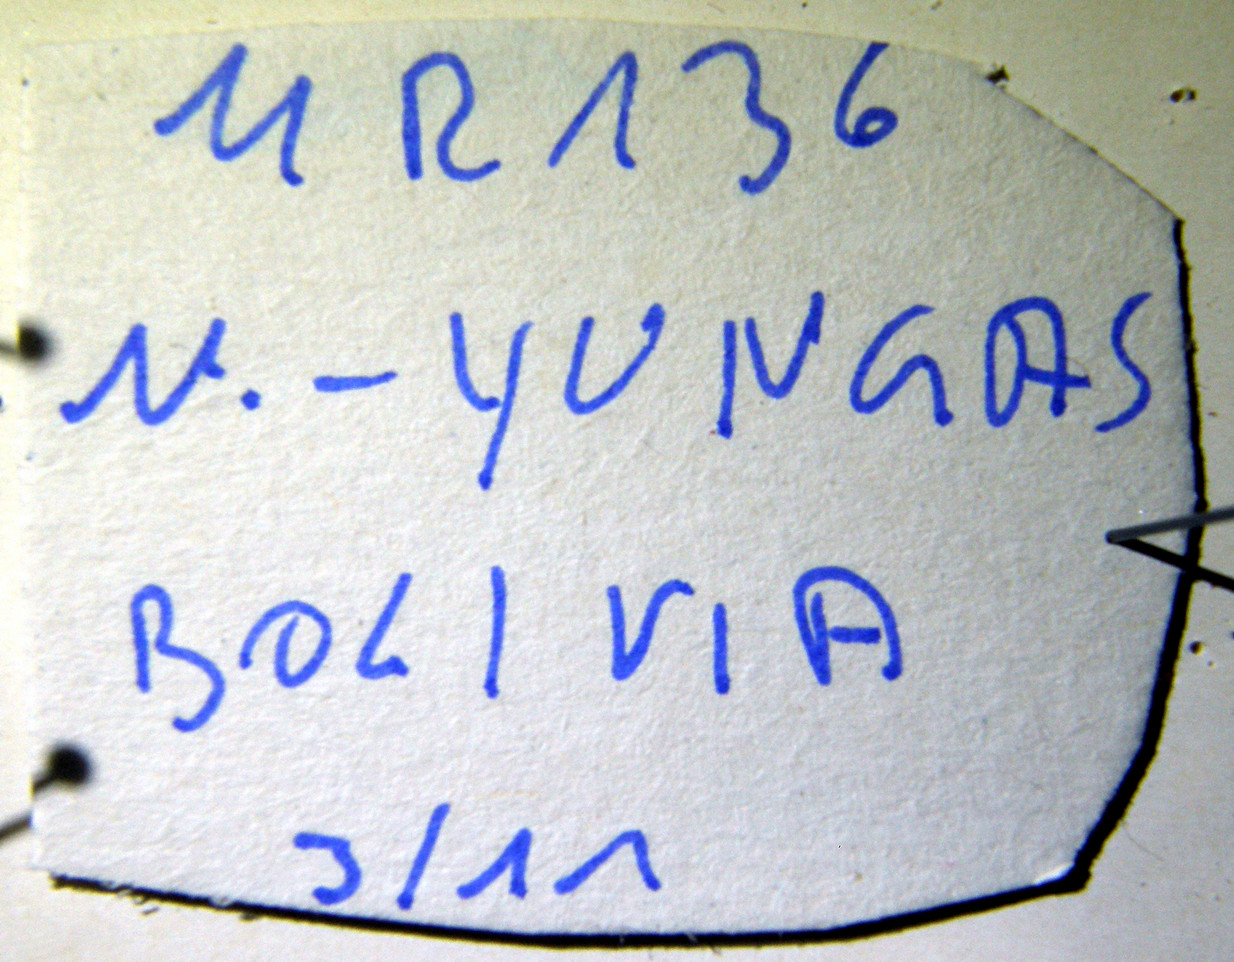 MR136
N.-YUNGAS
BOLIVIA
3/11